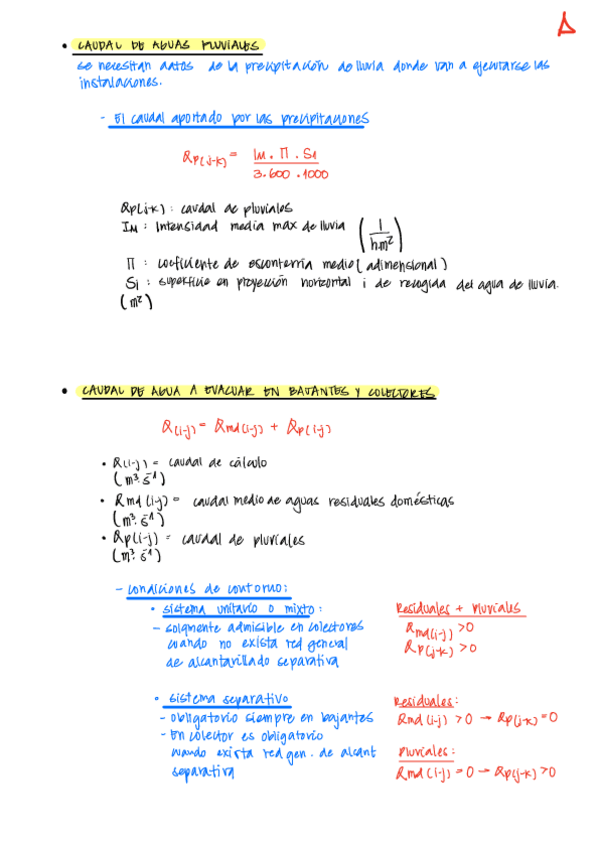 • CAUDAL DE AGUAS PLUVIALES
se necesitan datos de la precipitación de lluvia donde van a ejecutarse las
instalaciones.
- El caudal aportado por las precipitaciones
Qp(j-k) = Im . Π . Si / 3.600 . 1000
Qp(j-k) : caudal de pluviales
Im : Intensidad media max de lluvia (l / h.m²)
Π : coeficiente de esconterría medio (adimensional)
Si : superficie en proyección horizontal i de recogida del agua de lluvia.
(m²)
• CAUDAL DE AGUA A EVACUAR EN BAJANTES Y COLECTORES
Q(i-j) = Qmd(i-j) + Qp(i-j)
• Q(i-j) = caudal de cálculo
(m³·s⁻¹)
• Qmd (i-j) = caudal medio de aguas residuales domésticas
(m³·s⁻¹)
• Qp(i-j) = caudal de pluviales
(m³·s⁻¹)
- condiciones de contorno:
• sistema unitario o mixto:
- solamente admisible en colectores
cuando no exista red general
de alcantarillado separativa
Residuales + Pluviales
Qmd(i-j) > 0
Qp(j-k) > 0
• sistema separativo
- obligatorio siempre en bajantes
- En colector es obligatorio
cuando exista red gen. de alcant
separativa
Residuales:
Qmd (i-j) > 0 → Qp(j-k) = 0
Pluviales:
Qmd (i-j) = 0 → Qp(j-k) > 0